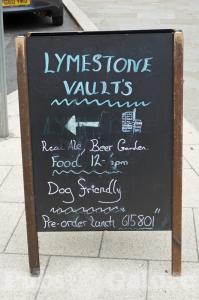 LYMESTONE
VAULT'S
Real Ale, Beer Garden
Food 12-
Dog friendly
Pre-order lunch 615801